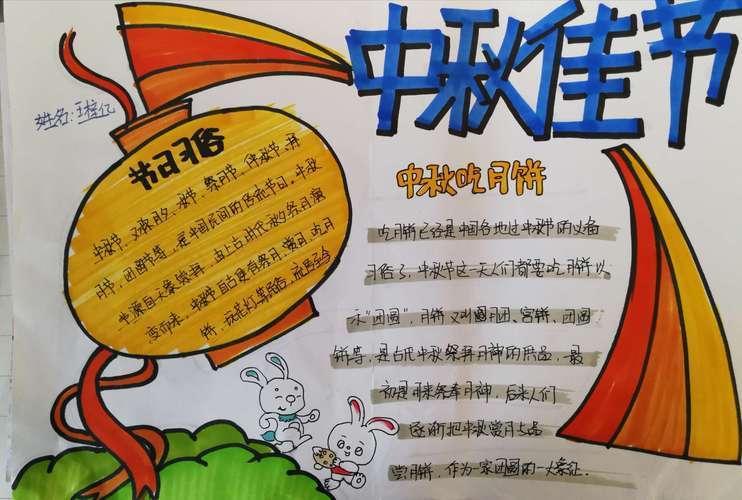 中秋佳节
姓名:王梓亿
节日习俗
中秋节、又称月夕、秋节、祭月节、仲秋节、拜
月节、团圆节等,是中国民间的传统节日。中秋
节源自天象崇拜,由上古时代秋夕祭月演
变而来,中秋节自古便有祭月、赏月、吃月
饼、玩花灯等民俗,流传至今
中秋吃月饼
吃月饼已经是中国各地过中秋节的必备
习俗了,中秋节这一天人们都要吃月饼以
示"团圆",月饼又叫月团、宫饼、团圆
饼等,是古代中秋祭拜月神的供品,最
初是用来祭奉月神,后来人们
逐渐把中秋赏月与品
尝月饼,作为一家团圆的一大象征.